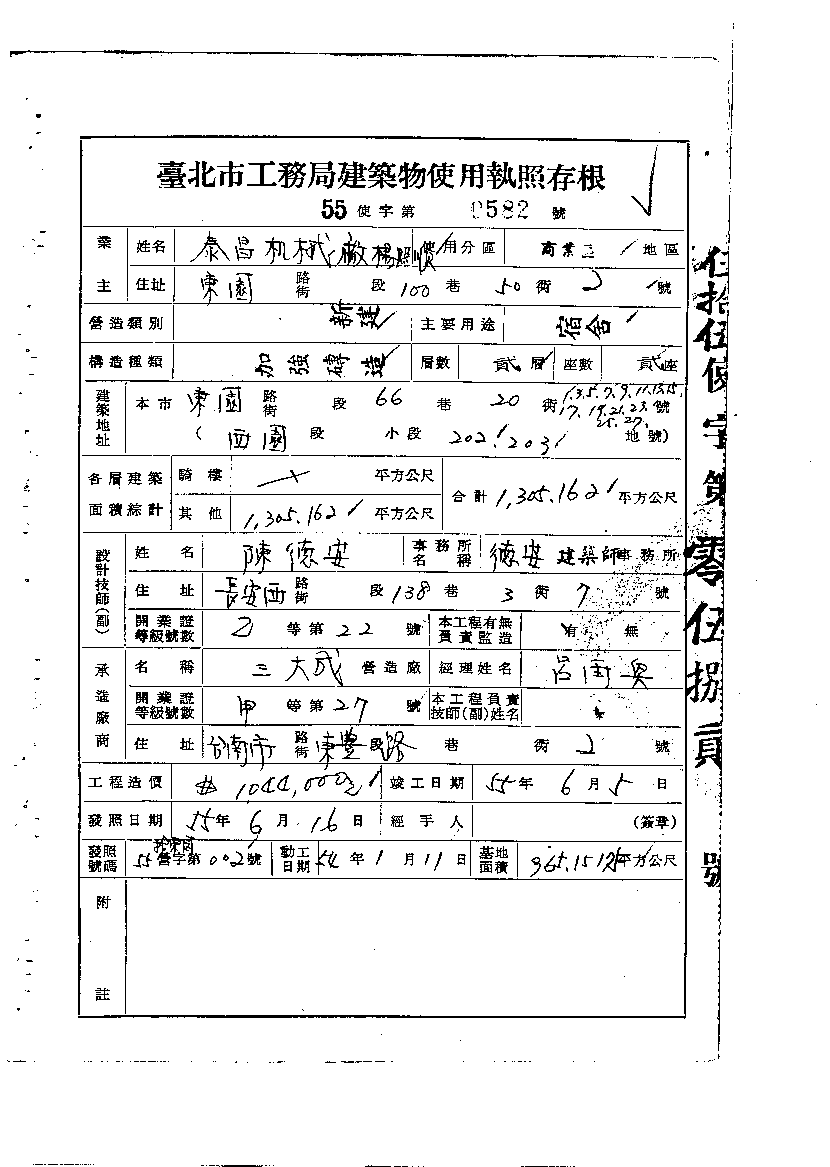 臺北市工務局建築物使用執照存根
55 使字第 0582 號
業主 姓名 泰昌机械廠楊照順 使用分區 商業 地區
住址 東園 路街 段 100 巷 50 衖 2 號
營造類別 新建 主要用途 宿舍
構造種類 加強磚造 層數 貳層 座數 貳座
建築地址 本市 東園 路街 段 66 巷 20 衖 1.3.5.7.9.11.13.15. 號
17. 19. 21. 23. 25. 27.
(西園 段 小段 202 203 地號)
各層建築面積綜計 騎樓 平方公尺 合計 1,305.162 平方公尺
其他 1,305.162 平方公尺
設計技師(副) 姓名 陳德安 事務所名稱 德安建築師事務所
住址 長安西 路街 段 138 巷 3 衖 7 號
開業證等級號數 乙 等第 22 號 本工程有無負責監造 有 無
承造廠商 名稱 三大成 營造廠 經理姓名 呂
開業證等級號數 甲 等第 27 號 本工程負責技師(副)姓名
住址 台南市 路街 東豐 段路 巷 衖 2 號
工程造價 1044,000 竣工日期 55年 6月 5日
發照日期 55年 6月 16日 經手人 (簽章)
發照號碼 55 營字第 002號 動工日期 54年 1月 11日 基地面積 365.15 平方公尺
附註
伍拾伍使字第零伍捌貳號